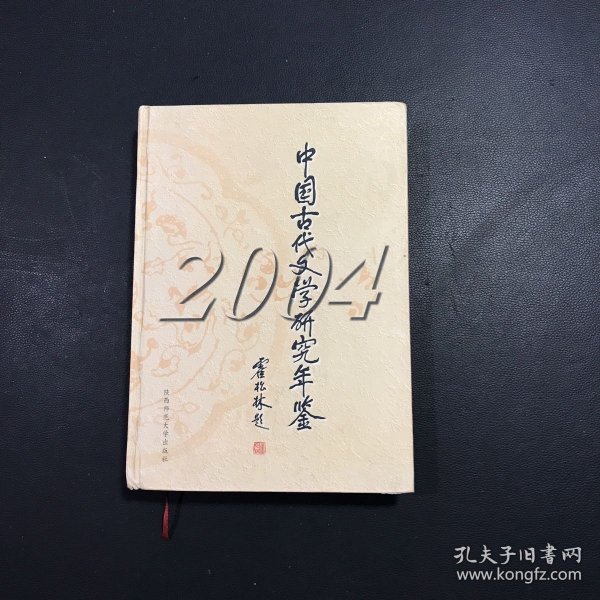 中国古代文学研究年鉴
2004
霍松林题
陕西师范大学出版社
孔夫子旧书网
www.kongfz.com